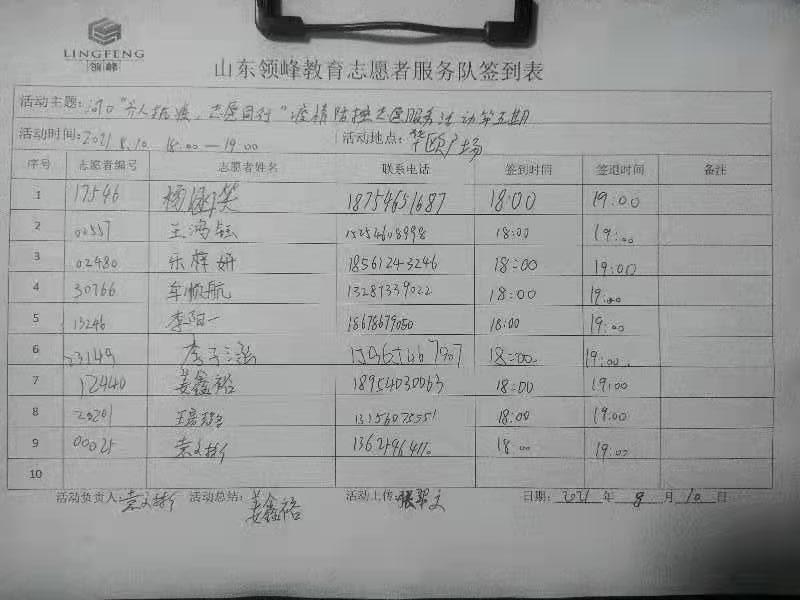 LINGFENG
领峰
山东领峰教育志愿者服务队签到表
活动主题: "万人抗疫,志愿同行"疫情防控志愿服务活动第五期
活动时间: 2021.8.10. 18:00—19:00 活动地点: 华欧广场
序号 志愿者编号 志愿者姓名 联系电话 签到时间 签退时间 备注
1 17546 杨涵笑 18754651687 18:00 19:00
2 00557 王鸿钰 15254608998 18:00 19:00
3 02480 乐梓妍 18561243246 18:00 19:00
4 30766 车顺航 13287339022 18:00 19:00
5 13246 李阳一 18678679050 18:00 19:00
6 23149 李子涵 18:00. 19:00.
7 12440 姜鑫裕 18954030063 18:00 19:00
8 20201 13156075551 18:00 19:00
9 00025 18:00 19:00
10
活动负责人: 活动总结: 姜鑫裕 活动上传: 日期: 2021 年 8 月 10 日